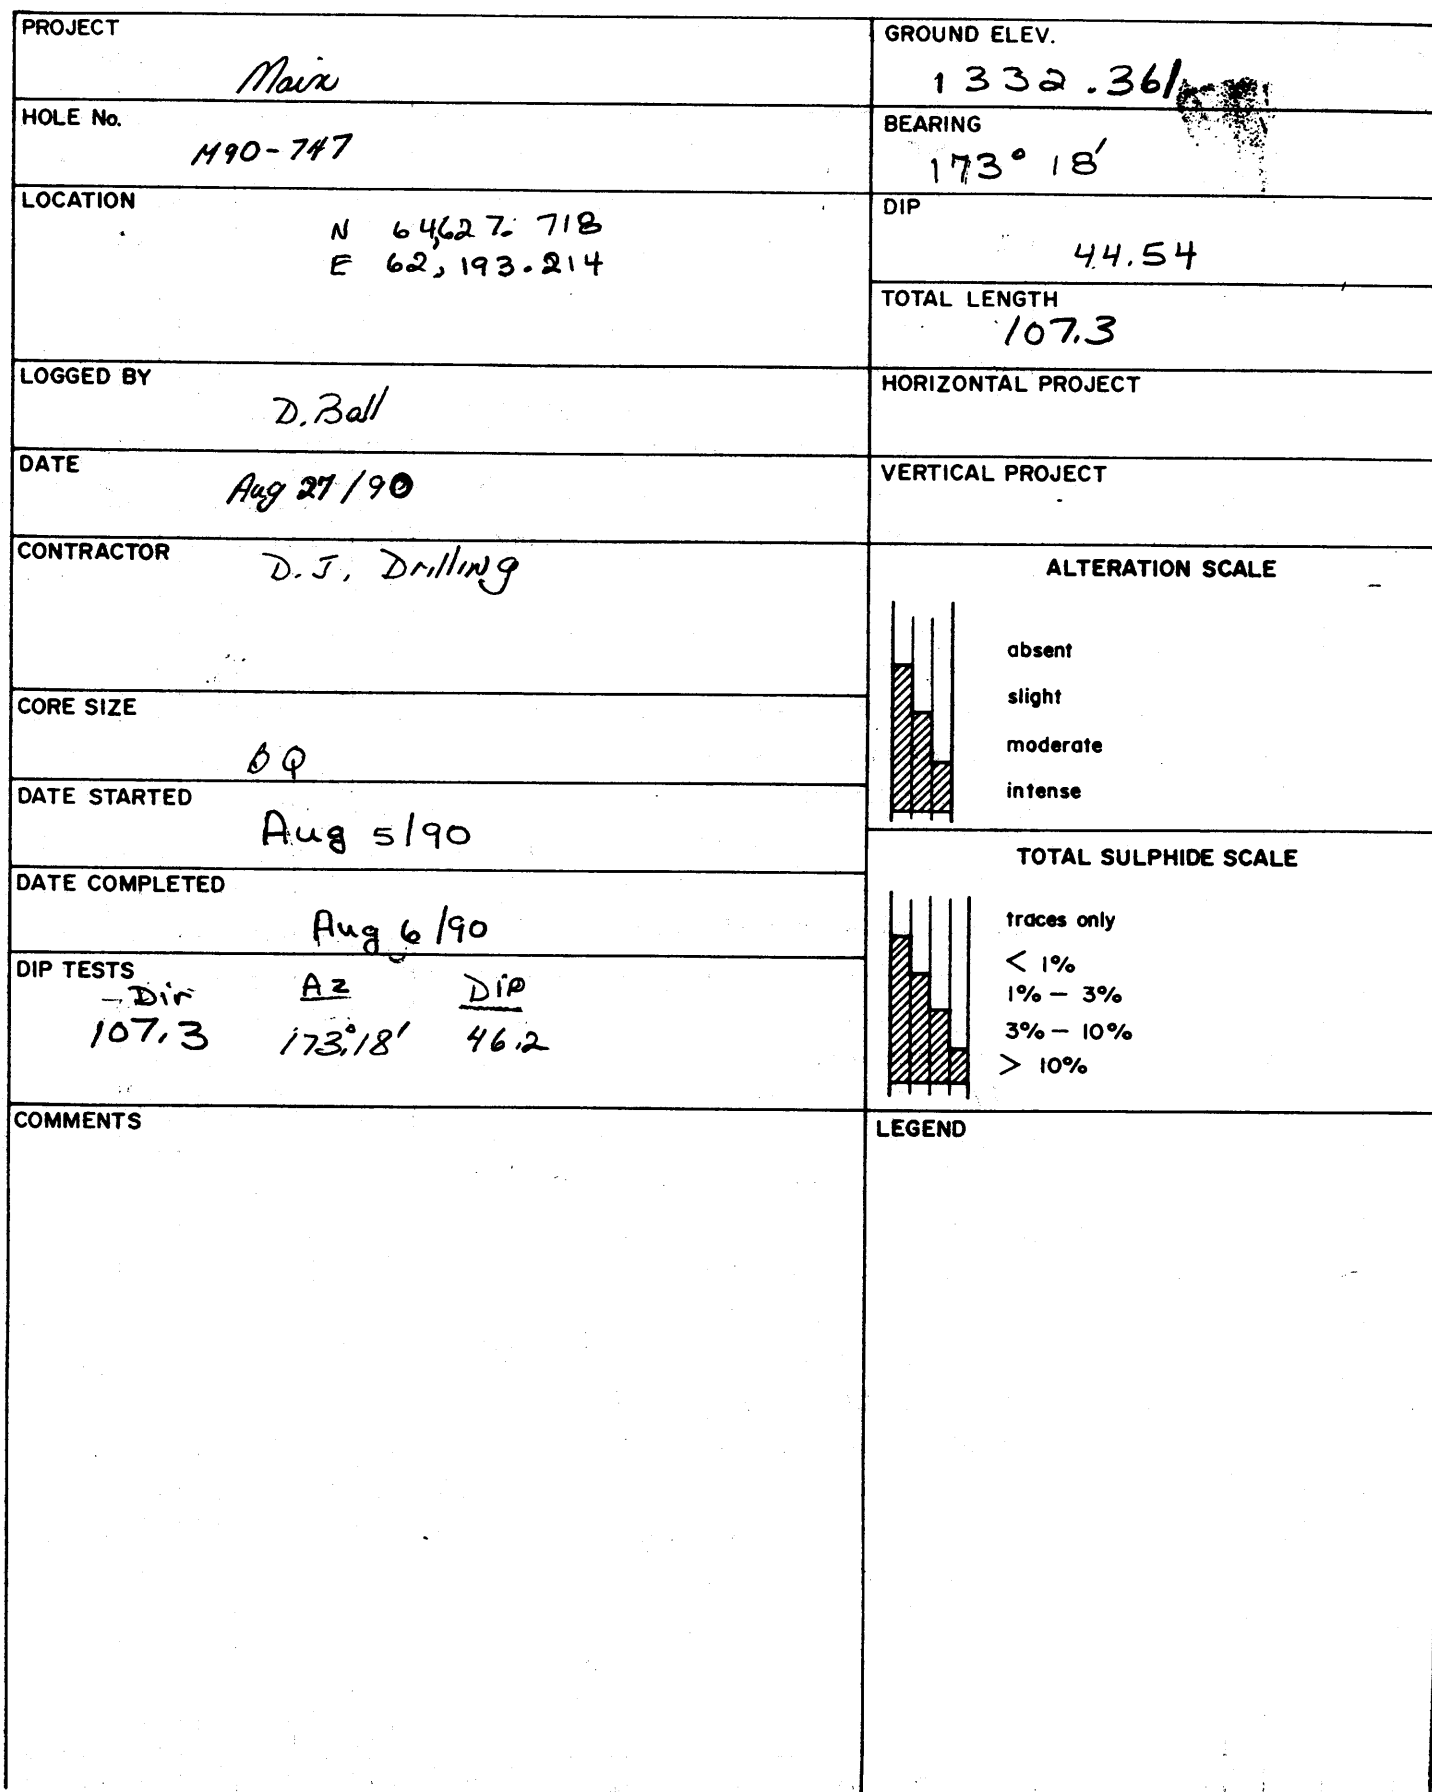 PROJECT
Main
HOLE No.
M90-747
LOCATION
N 64,627.718
E 62,193.214
LOGGED BY
D. Ball
DATE
Aug 27/90
CONTRACTOR
D.J. Drilling
CORE SIZE
BQ
DATE STARTED
Aug 5/90
DATE COMPLETED
Aug 6/90
DIP TESTS
Dir Az Dip
107.3 173°18' 46.2
COMMENTS
GROUND ELEV.
1332.361
BEARING
173° 18'
DIP
44.54
TOTAL LENGTH
107.3
HORIZONTAL PROJECT
VERTICAL PROJECT
ALTERATION SCALE
absent
slight
moderate
intense
TOTAL SULPHIDE SCALE
traces only
< 1%
1% – 3%
3% – 10%
> 10%
LEGEND